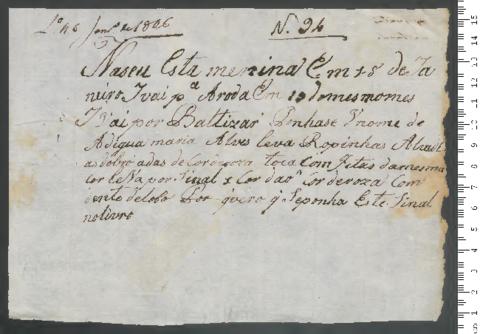 Janro de 1826
N. 94
Naseu Esta menina Em 18 de Ja
neiro I vai pa Aroda Em 19 domes momes
I vai por Baltizar Ponhase Onome de
Adigua maria Alves leva Ropinhas
as dobroadas de Cor toca Com fitas damesma
Cor leva por Sinal Cordao Cor deroza Com
dente delobo Por quero q Seponha Este Sinal
nolivro